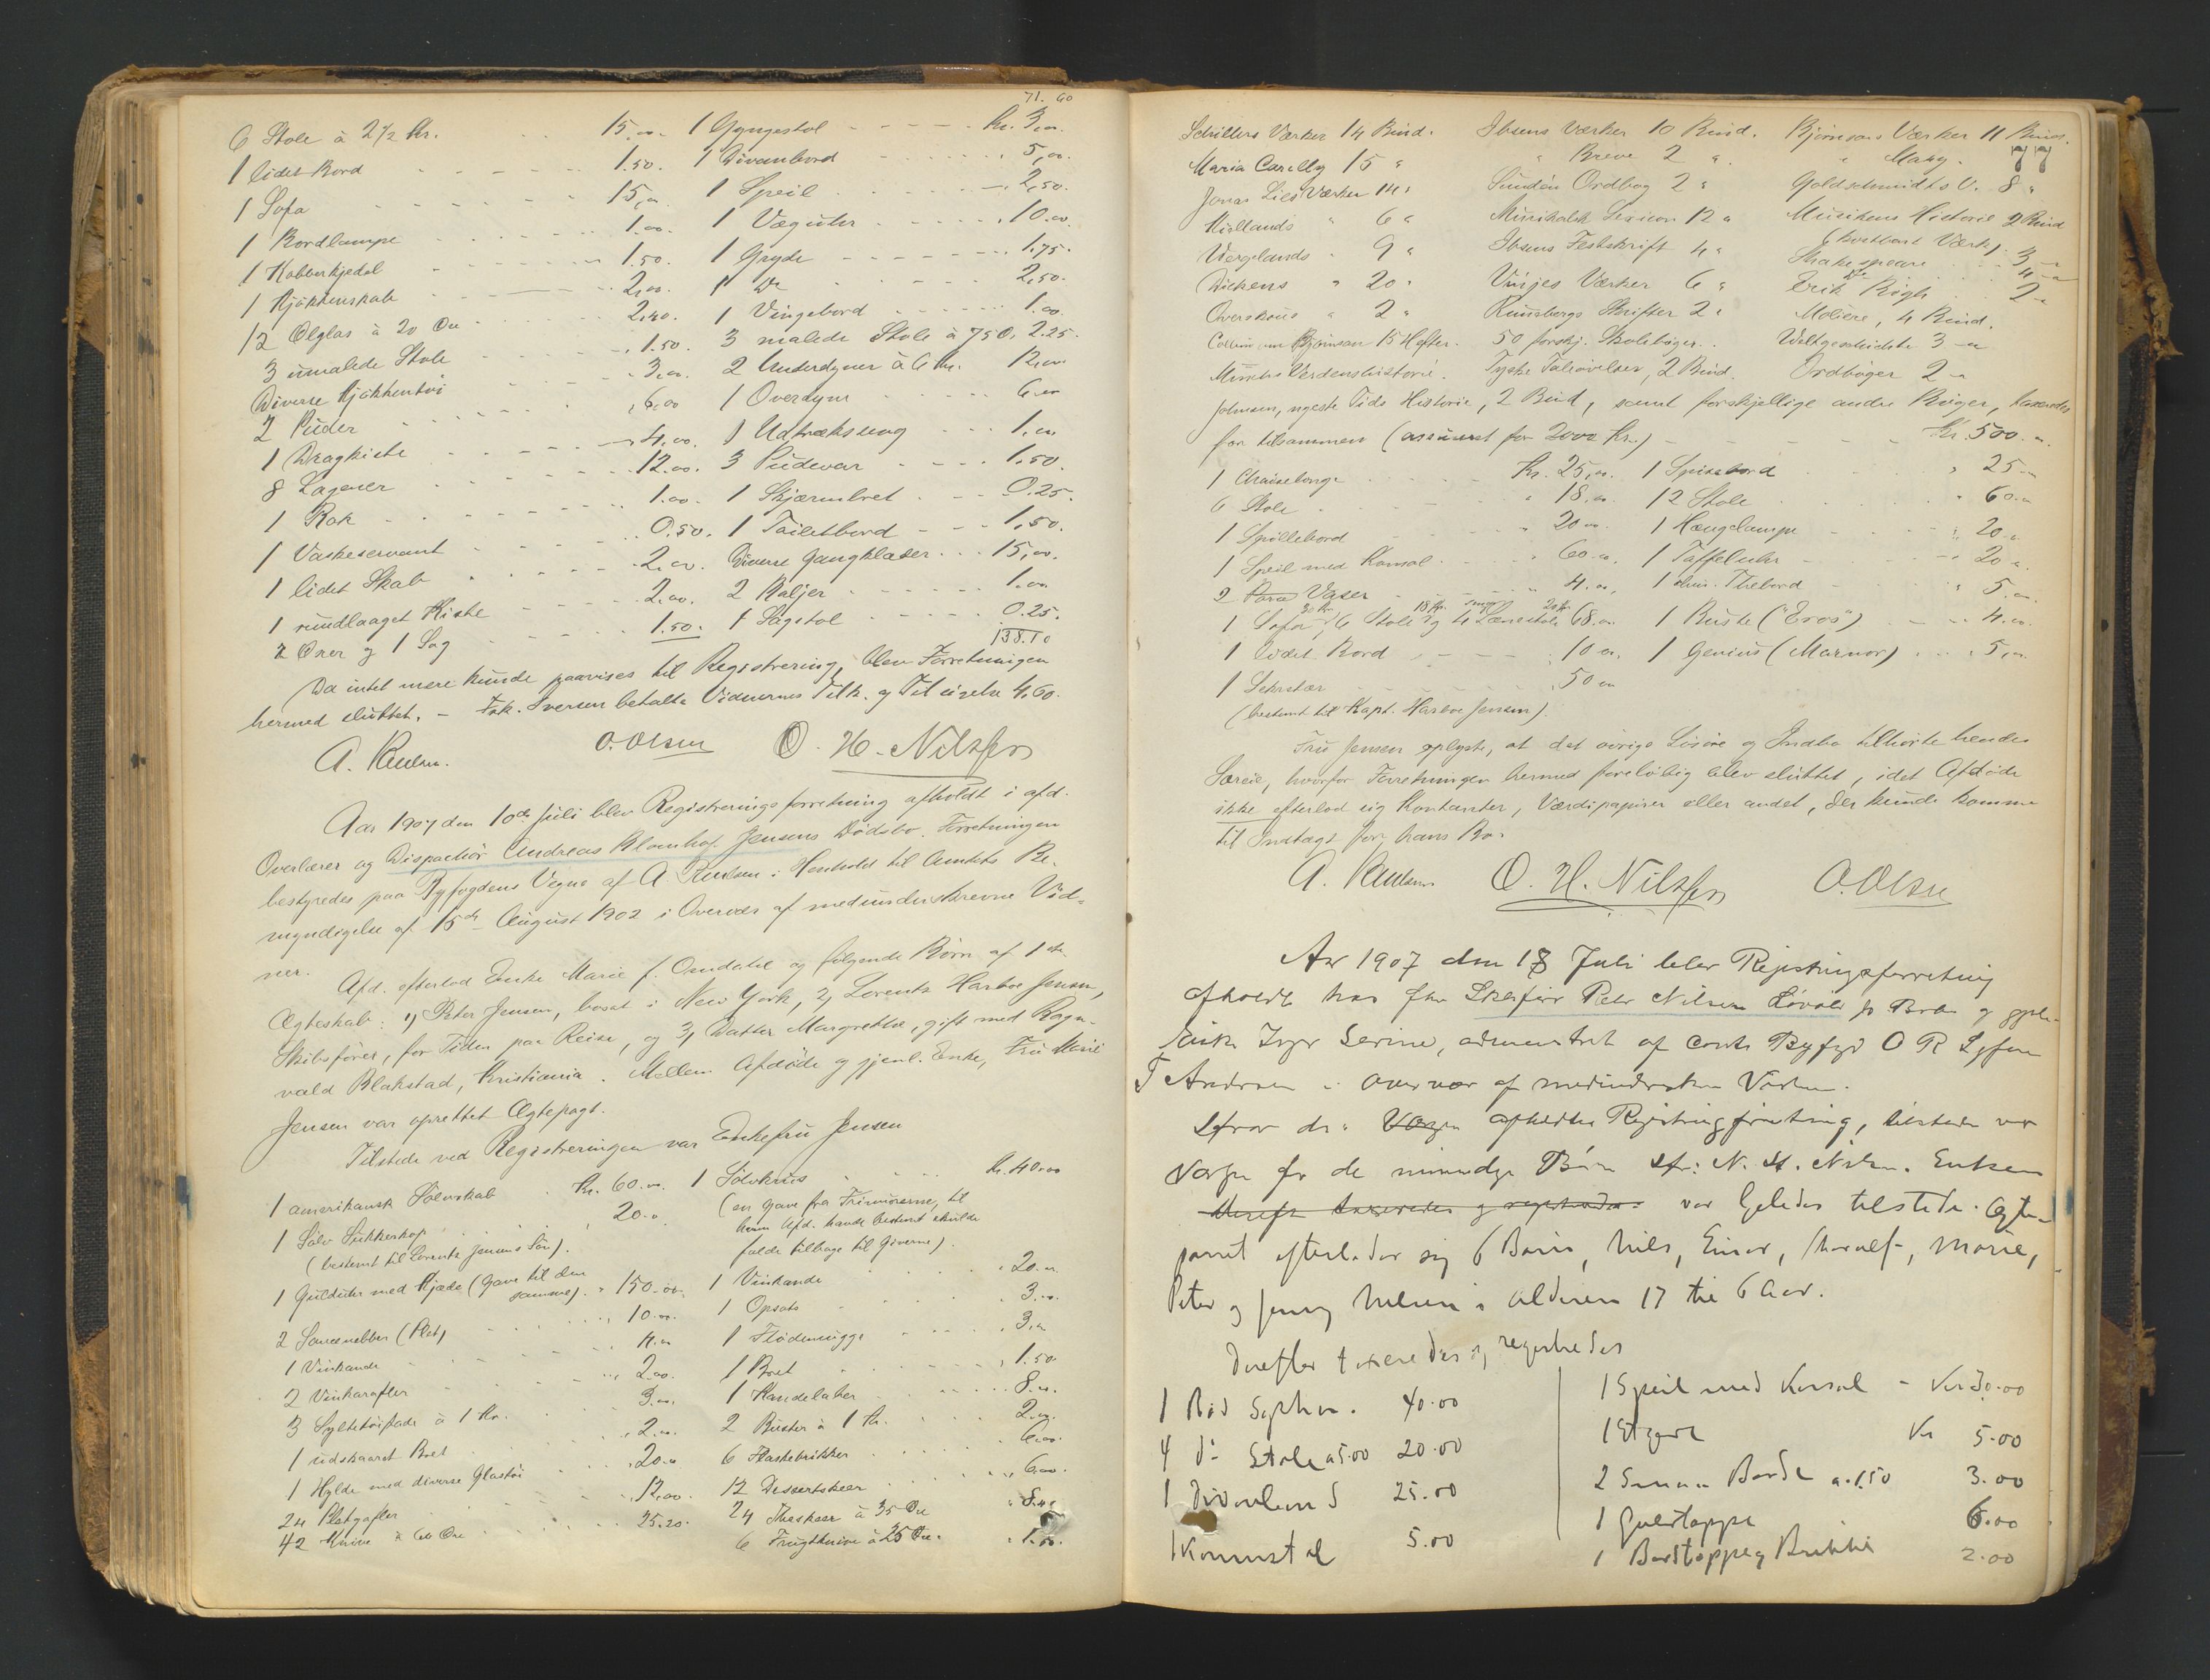 71.60
6 Stole à 2 1/2 Kr. 15.00. 1 Gyngestol Kr. 3,00.
1 lidet Bord 1.50. 1 Divanbord 5,00.
1 Sofa 15,00 1 Speil 2,50.
1 Bordlampe 1.00. 1 Væguhr 10.00.
1 Kobberkjedel 1.50. 1 Gryde 1.75.
1 Kjøkkenskab 2,00. 1 Do 2,50.
12 Ølglas à 20 Øre 2,40. 1 Vingebord 1.00.
3 umalede Stole 1.50. 3 malede Stole à 75 Ø. 2.25.
Diverse Kjøkkentøi 3,00. 2 Underdyner à 6 Kr. 12,00
2 Puder 6,00 1 Overdyne 6.00
1 Dragkiste 4,00. 1 Udtræksseng 1,00
8 Lagener 12.00. 3 Pudevar 1,50.
1 Rok 1.00. 1 Skjærmbret 0.25.
1 Vaskeservant 0.50. 1 Toiletbord 1,50.
1 lidet Skab 2,00. Diverse Gangklæder 15,00.
1 rundlaaget Kiste 2.00. 2 Baljer 1.00
2 Øxer og 1 Sag 1.50. 1 Sagstol 0.25.
138.10
Da intet mere kunde paavises til Registrering, blev Forretningen
hermed sluttet. – Frk. Iversen betalte Vidnernes Tilk. og Til 4.60.
A. Paulsen. O. Olsen O. H. Nilssen
Aar 1907 den 10de Juli blev Registreringsforretning afholdt i afd.
Overlærer og Dispachør Andreas Blomhof Jensens Dødsbo. Forretningen
bestyredes paa Byfogdens Vegne af A. Paulsen i Henhold til Amtets Be-
myndigelse af 15de August 1902 i Overvær af medunderskrevne Vid-
ner.
Afd. efterlod Enke Marie f. Omdahl og følgende Børn af 1ste
Ægteskab: 1) Peter Jensen, bosat i New York, 2) Lorentz Harboe Jensen,
Skibsfører, for Tiden paa Reise, og 3) Datter Margrethe, gift med Ragn-
vald Blakstad, Kristiania. Mellem Afdøde og gjenl. Enke, Fru Marie
Jensen var oprettet Ægtepagt.
Tilstede ved Registreringen var Enkefru Jensen
1 amerikansk Sølvskab Kr. 60.00. 1 Sølvkrus Kr. 40.00
1 Sølv Sukkerkop 20.00 (en Gave fra Frimurerne, til
(bestemt til Lorentz Jensens Søn). hvem Afd. havde bestemt skulde
falde tilbage til Giverne).
1 Gulduhr med Kjæde (Gave til den samme). 150.00. 1 Vinkande 20.00.
2 Saucenebber (Plet) 10.00. 1 Opsats 3.00.
1 Vinkande 4.00 1 Flødemugge 3.00
2 Vinkarafler 2.00. 1 Bret 1.50.
3 Syltetøifade à 1 Kr. 3.00. 1 Kandelaber 8.00.
1 udskaaret Bret 2.00. 2 Buster à 1 Kr. 2.00.
1 Hylde med diverse Glastøi 20.00 6 Flaskebrikker 6.00.
24 Pletgafler 12,00. 12 Dessertskeer 6.00.
42 Knive à 60 Øre 25.20. 24 Theskeer à 35 Øre 8.40
6 Frugtknive à 25 Øre. 1.50.
77
Schillers Værker 14 Bind. Ibsens Værker 10 Bind. Bjørnsons Værker 11 Bind.
Maria Corelly 15 " " Breve 2 " "
Jonas Lies Værker 14 " Sundén Ordbog 2 " Goldschmidts V. 8 "
Kiellands " 6 " Musikalsk Lexicon 12 " Musikens Historie 2 Bind
(kostbart Værk).
Wergelands " 9 " Ibsens Festskrift 4 " Shakespeare 3
Dickens " 20 " Vinjes Værker 6 " Erik Bøgh 2
Overskous " 2 " Runebergs Skrifter 2 " Moliere, 4 Bind.
Collin om Bjørnson 15 Hefter. 50 forskj. Skolebøger. Weltgeschichte 3
Munchs Verdenshistorie. Tyske Taleøvelser, 2 Bind. Ordbøger 2
Johnsen, nyeste Tids Historie, 2 Bind, samt forskjellige andre Bøger, taxeredes
for tilsammen (assureret for 2000 Kr.) Kr. 500.00.
1 Chaiselonge Kr. 25,00. 1 Spisebord " 25
6 Stole " 18.00. 12 Stole " 60.00
1 Spillebord " 20.00. 1 Hængelampe " 20
1 Speil med Konsol " 60.00. 1 Taffeluhr 20
2 Vaser " 4.00, 1 Thebord " 5.
1 Sofa, 6 Stole og 4 Lænestole 68.00. 1 Buste ("Eros") 4.00.
1 ovalt Bord 10.00. 1 Genius (Marmor) 5,00.
1 Sekretær 50.00
(bestemt til Kapt. Harboe Jensen).
Fru Jensen oplyste, at det øvrige Løsøre og Indbo tilhørte hendes
Særeie, hvorfor Forretningen hermed foreløbig blev sluttet, idet Afdøde
ikke efterlod sig Kontanter, Værdipapirer eller andet, der kunde komme
til Indtægt for hans Bo.
A. Paulsen O. H. Nilssen O. Olsen
Aar 1907 den 18 Juli blev Registringsforretning
afholdt hos Peter Nilsen og
Enke Serine, af Byfgd O R
T Andersen i Overvær af
afholdtes Registringsforretning, tilstede var
Værge for de umyndige Børn N. Enken
var ligeledes tilstede. Ægte-
parret efterlader sig 6 Børn, Nils, Einar, Harald, Marie,
Peter og Jenny Nilsen i Alderen 17 til 6 Aar.
Derefter taxeredes og registreredes
1 Rød Sopha. 40.00 1 Speil med Konsol – Kr 30.00
4 do Stole a 5.00 20.00 Kr 5.00
1 25.00 2 Smaa Borde a 1.50 3.00
1 5.00 1 Gulvtæppe 6.00
1 Bordtæppe og 2.00